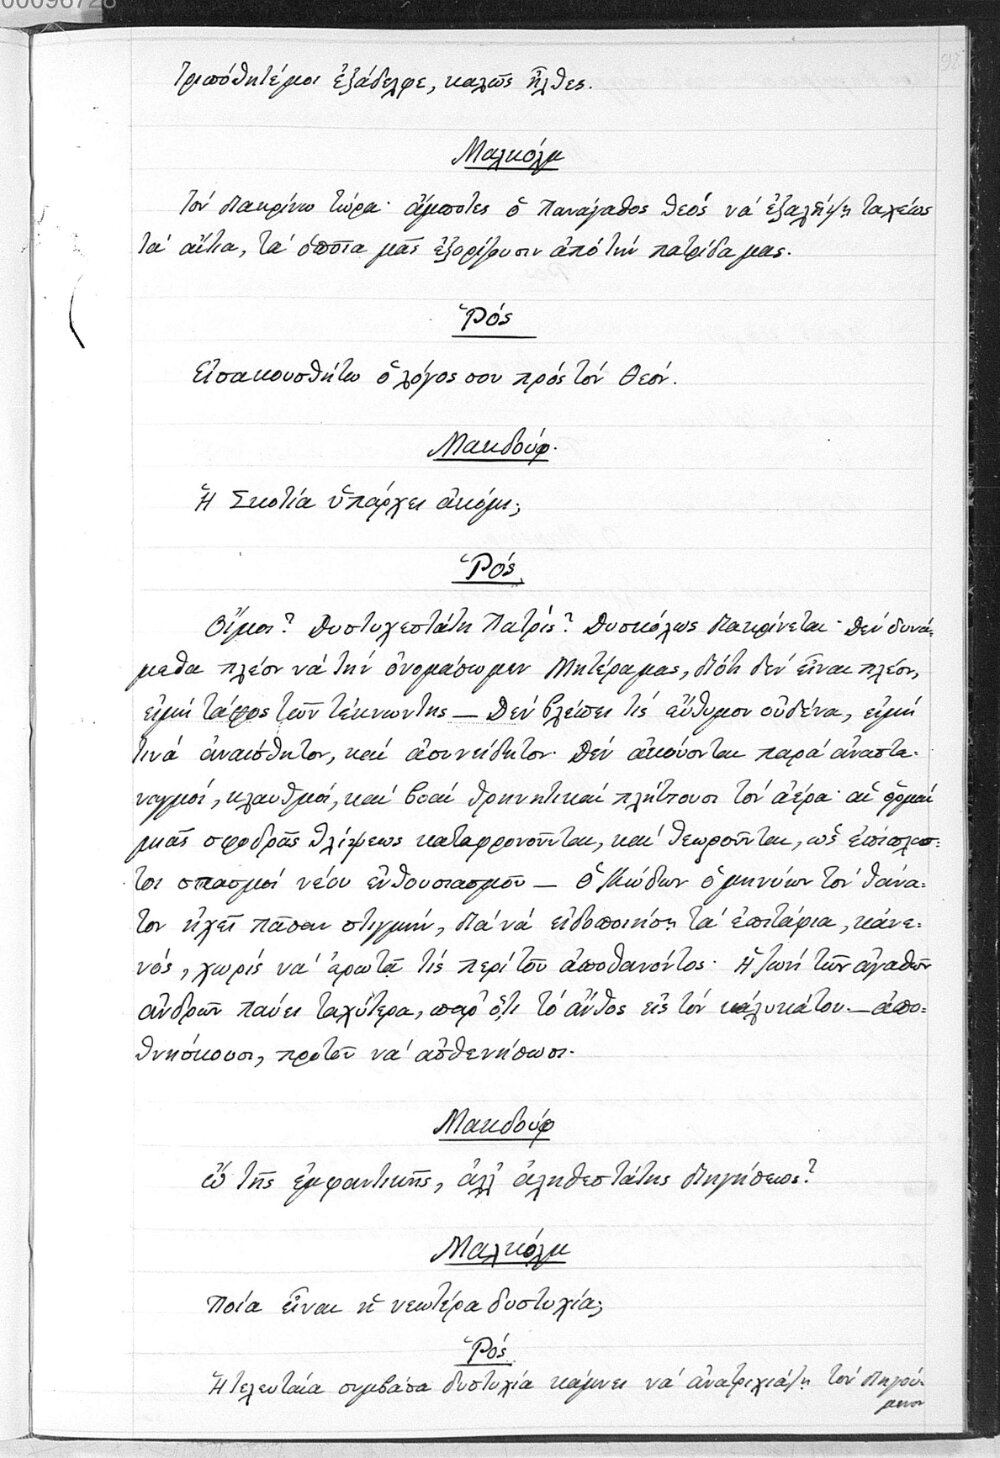 00096728
τριπόθητέ μοι ἐξάδελφε, καλῶς ἦλθες.
Μαλκόλμ
Τὸν διακρίνω τώρα· ἄμποτες ὁ Πανάγαθος Θεὸς νὰ ἐξαλείψῃ ταχέως
τὰ αἴτια, τὰ ὁποῖα μᾶς ἐξορίζουσιν ἀπὸ τὴν πατρίδα μας.
Ῥός
Εἰσακουσθήτω ὁ λόγος σου πρὸς τὸν Θεόν.
Μακδούφ.
Ἡ Σκοτία ὑπάρχει ἀκόμη;
Ῥός
Οἴμοι! Δυστυχεστάτη Πατρίς! Δυσκόλως διακρίνεται· Δὲν δυνά-
μεθα πλέον νὰ τὴν ὀνομάσωμεν Μητέρα μας, διότι δὲν εἶναι πλέον,
εἰμὴ τάφος τῶν τέκνων της — Δὲν βλέπει τὶς εὔθυμον οὐδένα, εἰμὴ
τινὰ ἀναίσθητον, καὶ ἀσυνείδητον· Δὲν ἀκούονται παρὰ ἀναστε-
ναγμοί, κλαυθμοί, καὶ βοαὶ θρηνητικαὶ πλήττουσι τὸν ἀέρα· αἱ ὁρμαὶ
μιᾶς σφοδρᾶς θλίψεως καταφρονοῦνται, καὶ θεωροῦνται, ὡς ἐπίπλασ-
τοι σπασμοὶ νέου ἐνθουσιασμοῦ — Ὁ Κώδων ὁ μηνύων τὸν θάνα-
τον ἠχεῖ πᾶσαν στιγμήν, διὰ νὰ εἰδοποιήσῃ τὰ ἐπιτάφια, κἀνε-
νός, χωρὶς νὰ ἐρωτᾷ τὶς περὶ τοῦ ἀποθανόντος· Ἡ ζωὴ τῶν ἀγαθῶν
ἀνδρῶν παύει ταχύτερα, παρ' ὅ,τι τὸ ἄνθος εἰς τὸν κάλυκά του — ἀπο-
θνήσκουσι, προτοῦ νὰ ἀσθενήσωσι.
Μακδούφ
Ὢ τῆς ἐμφαντικῆς, ἀλλ' ἀληθεστάτης διηγήσεως!
Μαλκόλμ
Ποία εἶναι ἡ νεωτέρα δυστυχία;
Ῥός
Ἡ τελευταία συμβᾶσα δυστυχία κάμνει νὰ ἀνατριχιάζῃ τὸν διηγού-
μενον